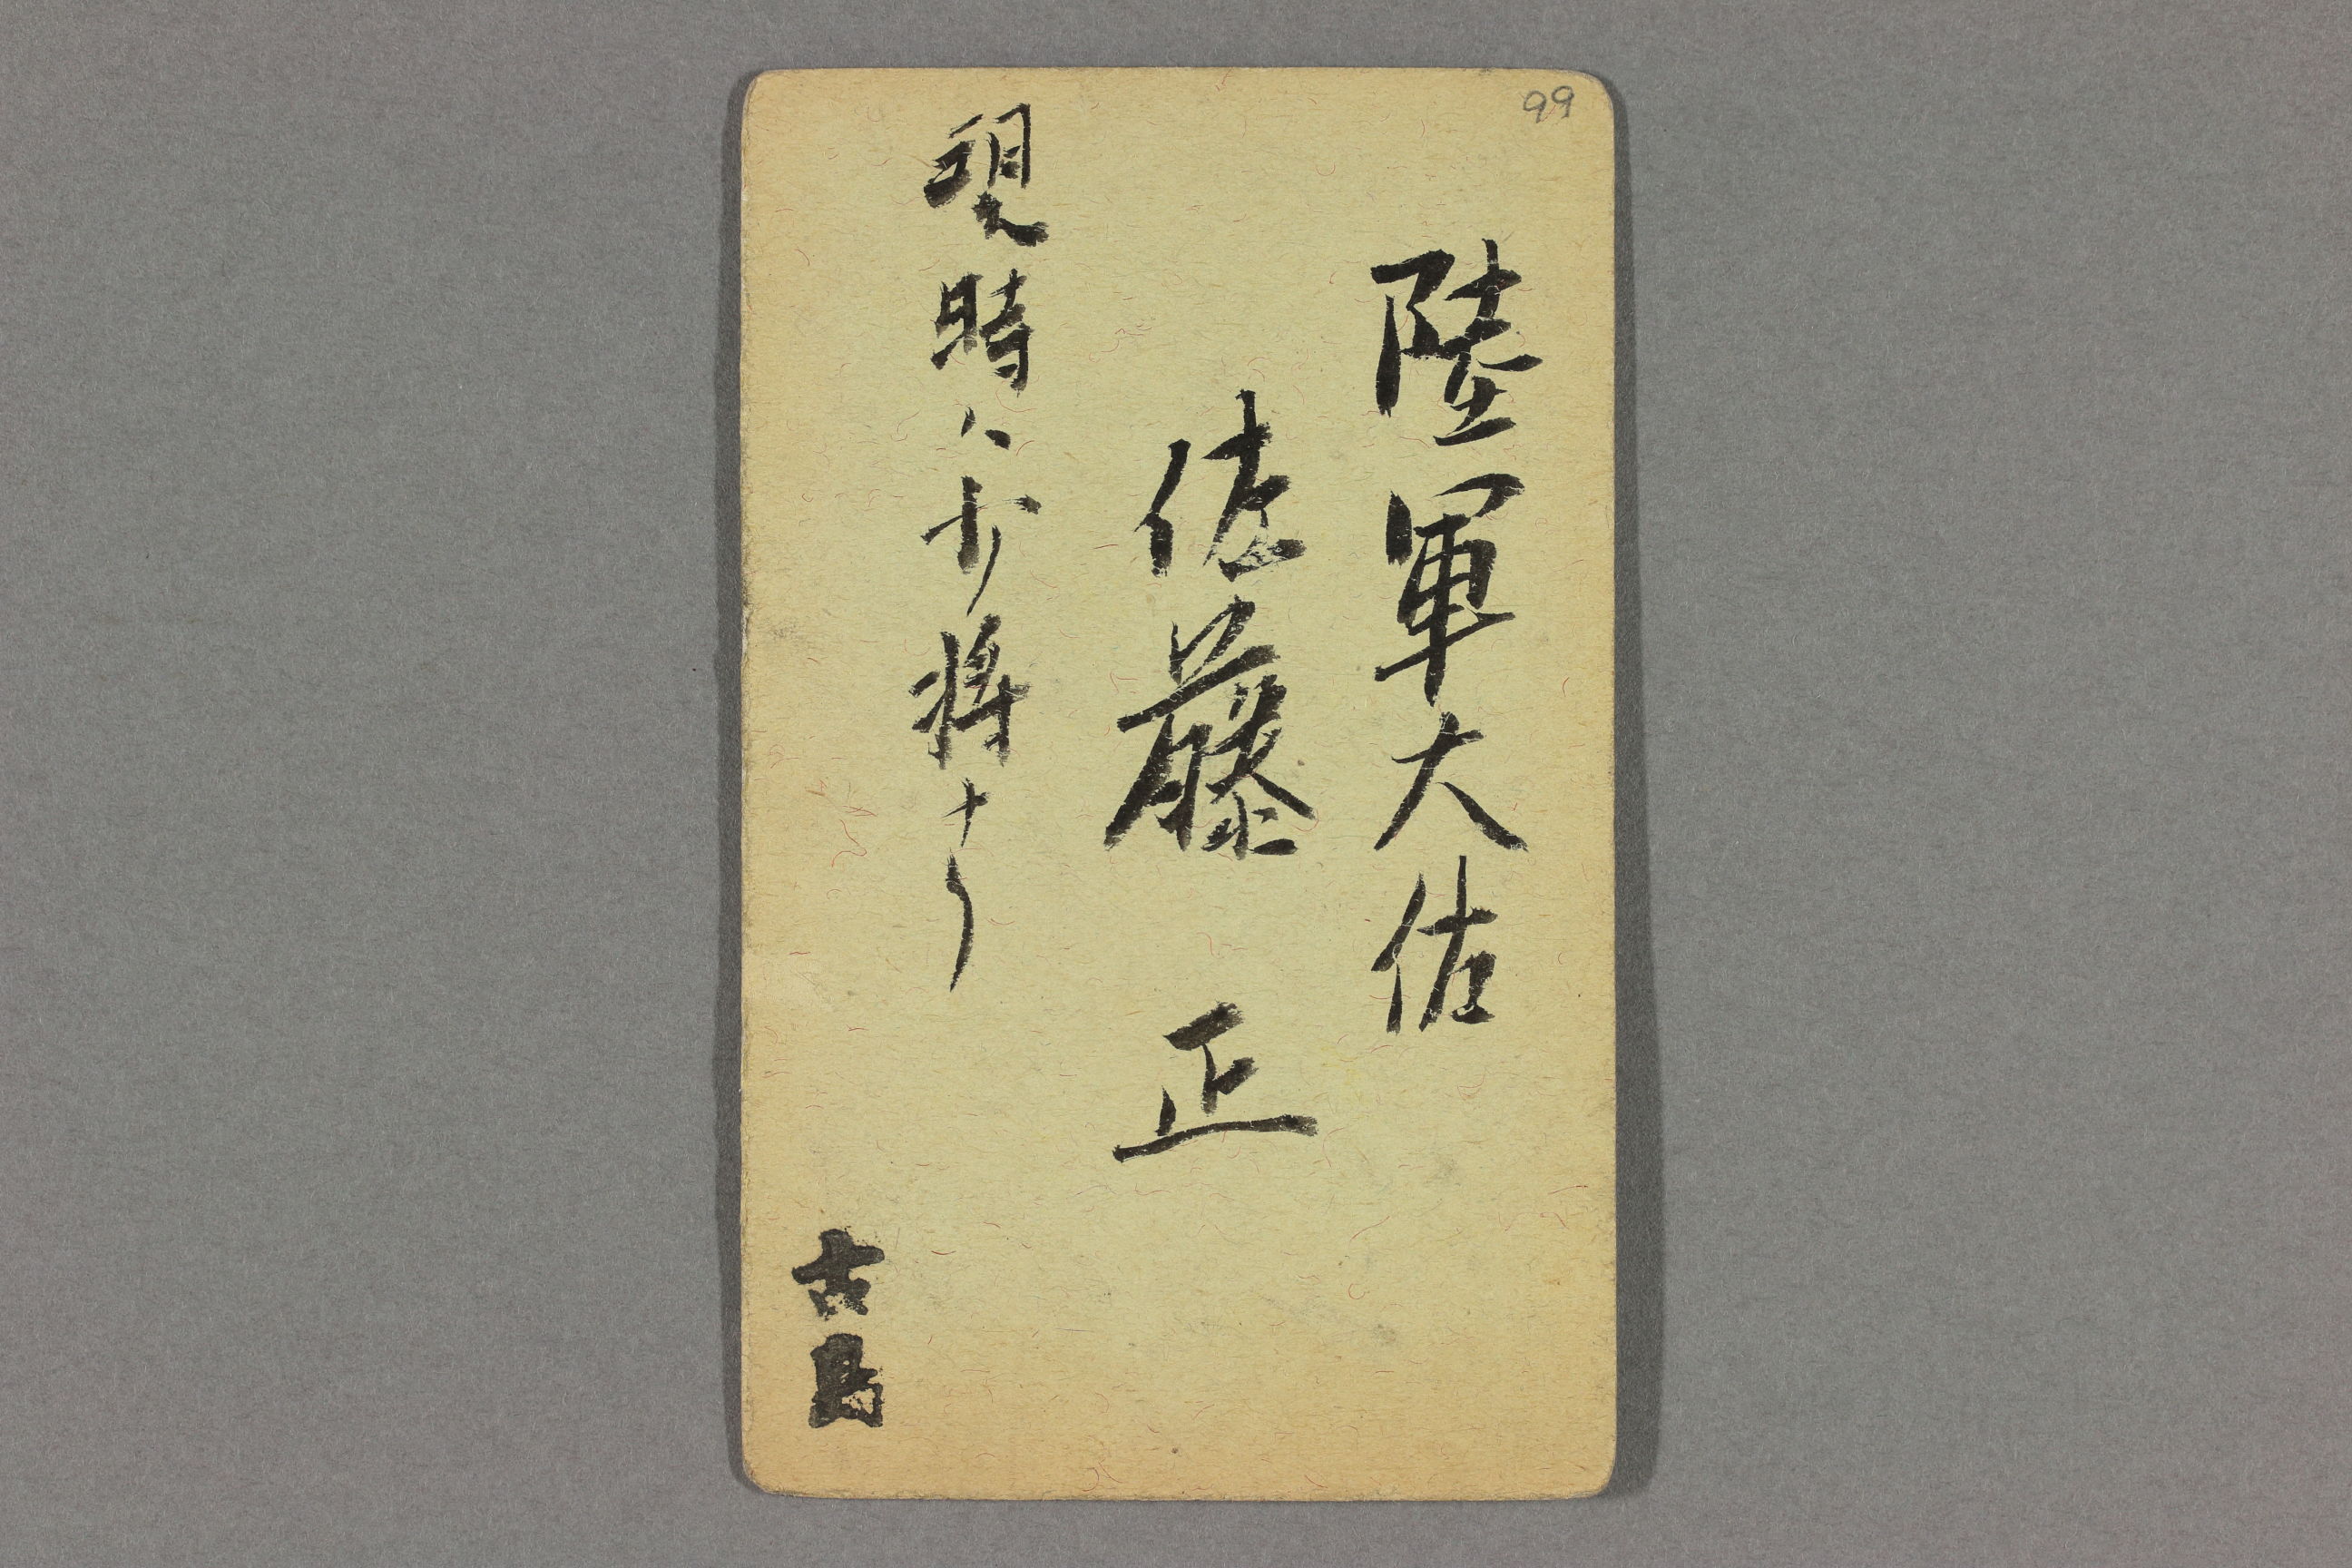 99
陸軍大佐
佐藤 正
現時ハ少将ナリ
古島